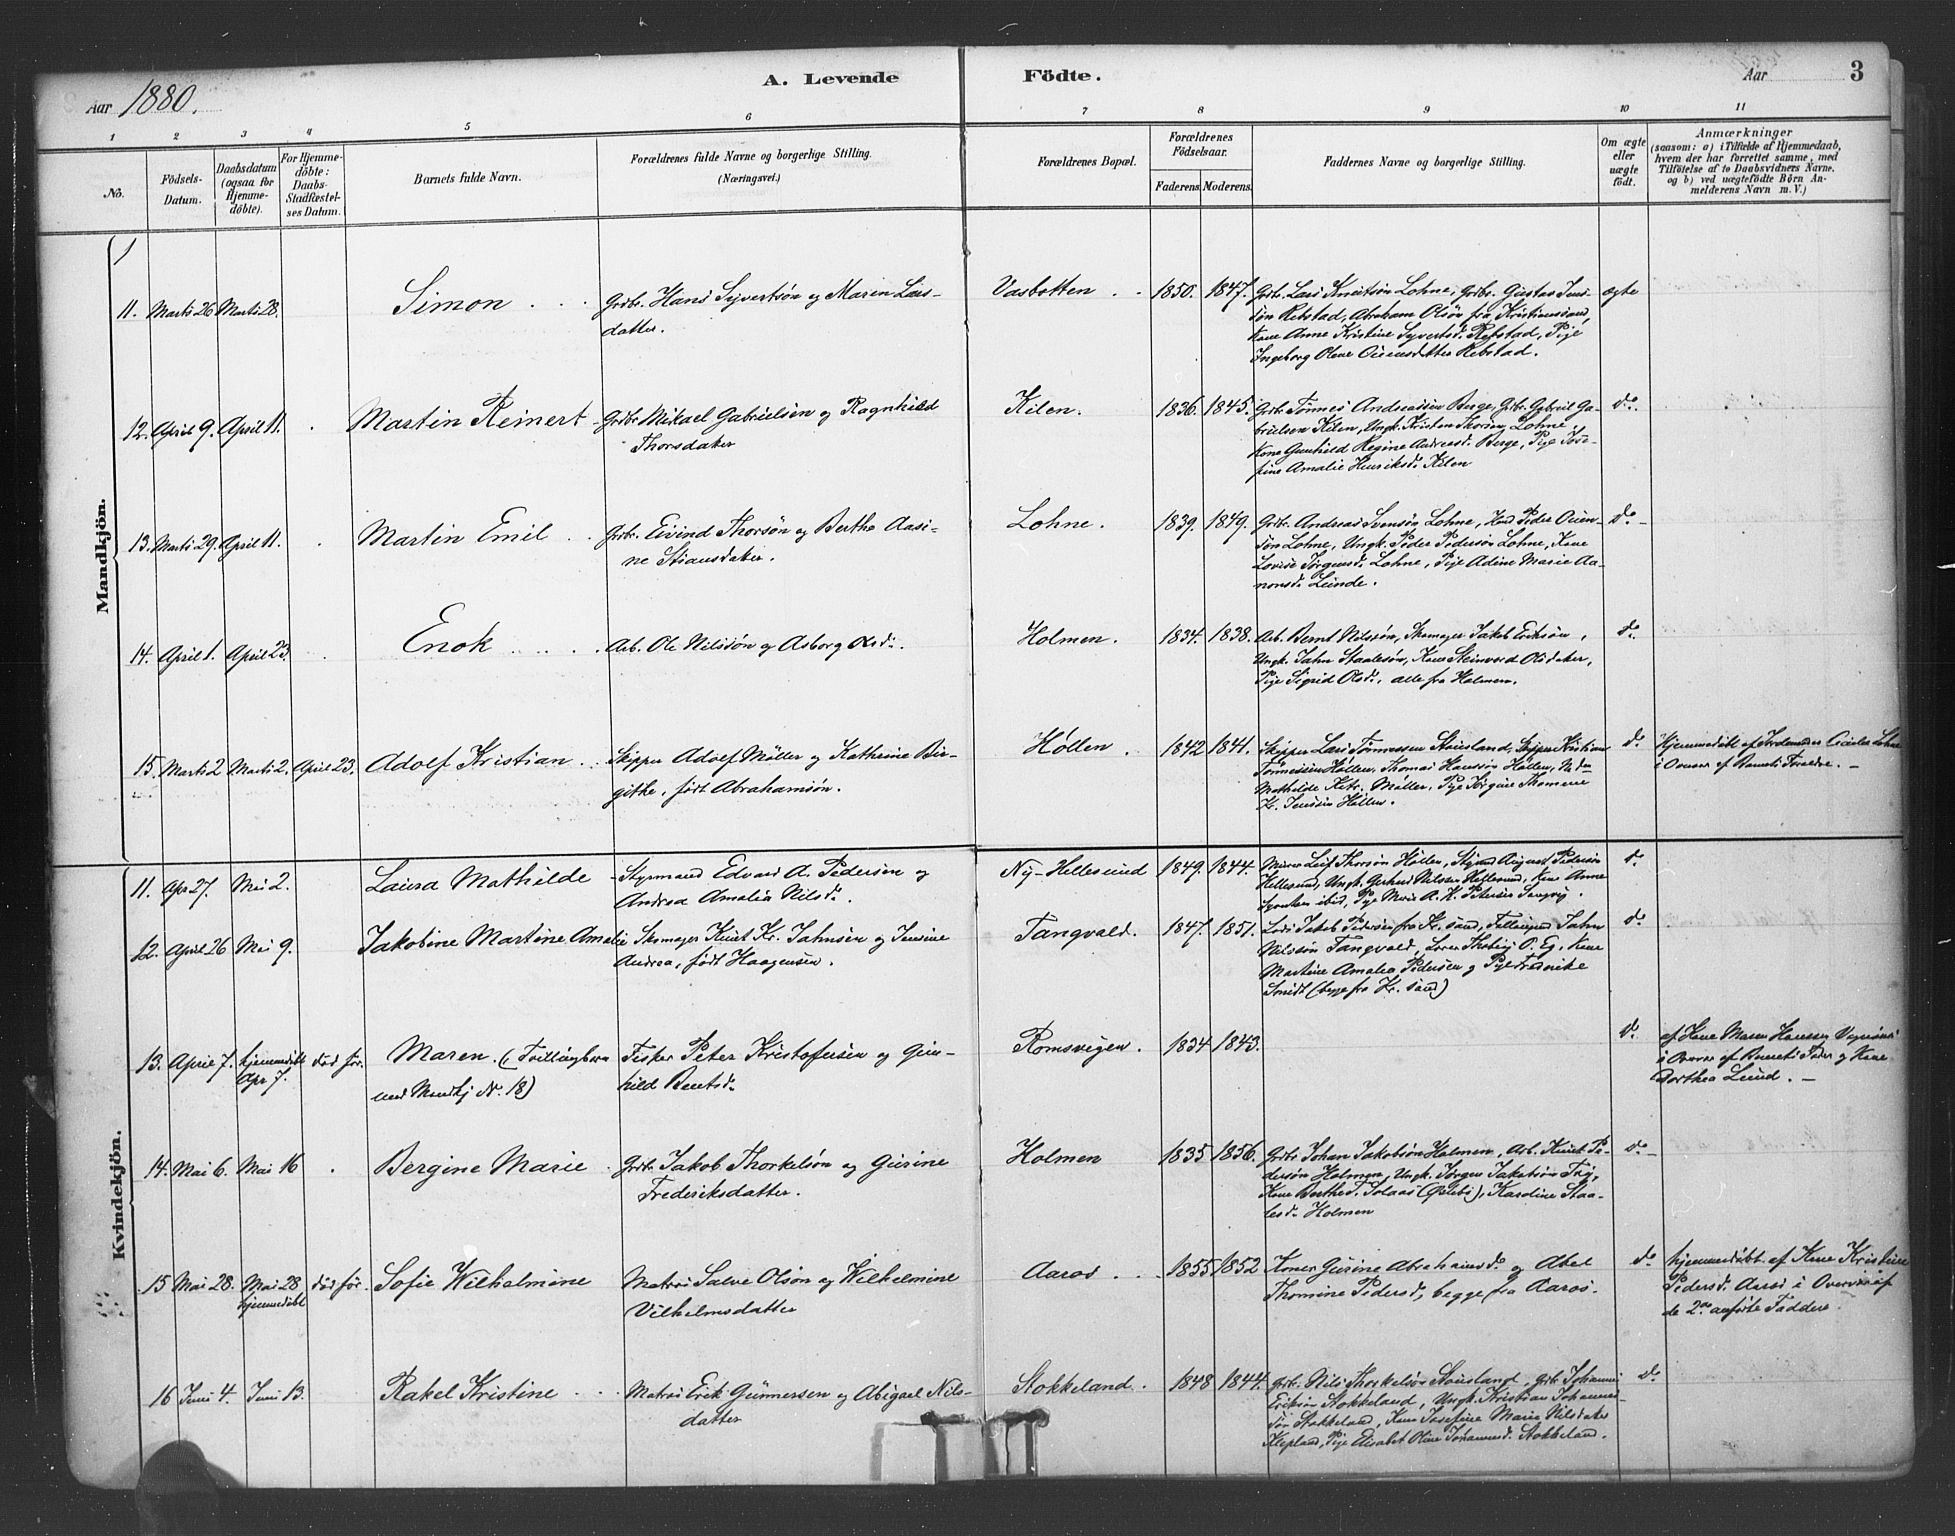 Aar 1880.
A. Levende Födte.
Aar 3
1 2 3 4 5 6 7 8 9 10 11
No.
Födsels-
Datum.
Daabsdatum
(ogsaa for
Hjemme-
döbte).
For Hjemme-
döbte:
Daabs-
Stadfæstel-
ses Datum.
Barnets fulde Navn.
Forældrenes fulde Navne og borgerlige Stilling.
(Næringsvei.)
Forældrenes Bopæl.
Forældrenes
Födselsaar.
Faderens. Moderens.
Faddernes Navne og borgerlige Stilling.
Om ægte
eller
uægte
födt.
Anmærkninger
(saasom: a) i Tilfælde af Hjemmedaab,
hvem der har forrettet samme, med
Tilföielse af to Daabsvidners Navne,
og b) ved uægtefödte Börn An-
melderens Navn m. V.)
Mandkjön.
11. Marts 26 Marts 28. Simon Grdbr. Hans Syvertsön og Maren Lars-
datter. Vasbotten 1850. 1847. Grdbr. Lars Knutsön Lohne, Grdbr. Gustav Jens-
sön Rebstad, Abraham Olsön fra Kristianssand,
Kone Anne Kristine Syvertsd. Rebstad, Pige
Ingeborg Olene Rebstad. ægte
12. April 9. April 11. Martin Reinert Grdbr. Mikael Gabrielsen og Ragnhild
Thorsdatter Kilen. 1836. 1845. Grdbr. Tönnes Andreassen Berge, Grbr. Gabriel Ga-
brielsen Kilen, Ungk. Kristen Thorsen Lohne,
Kone Gunhild Regine Andreasd. Berge, Pige Jose-
fine Amalie Henriksd. Kilen do.
13. Marts 29. April 11. Martin Emil Grdbr. Eivind Thorsön og Berthe Aasi-
ne Stiansdatter. Lohne. 1839. 1849. Grdbr. Andreas Svensön Lohne, Peder
sön Lohne, Ungk. Peder Pedersön Lohne, Kone
Lovise Jörgensd. Lohne, Pige Adine Marie Aa-
nonsd. Lunde. do.
14. April 1. April 23. Enok Arb. Ole Nilssön og Asborg Olsd. Holmen. 1834. 1838. Arb. Bernt Nilssön, Skomager Jakob Eriksön,
Ungk. Jahn Staalesön, Kone Steinvord Olsdatter,
Pige Sigrid Olsd., alle fra Holmen. do.
15. Marts 2 Marts 2. April 23. Adolf Kristian Skipper Adolf Möller og Kathrine Bir-
gitte, födt Abrahamsön. Höllen. 1842 1841. Skipper Lars Tönnessen Stousland, Skipper Kristian
Tönnessen Höllen, Thomas Hanssön Höllen,
Mathilde Möller, Pige Jörgine Thomene
K. Jenssön Höllen. do. Hjemmedöbt af Jordemoder Cicilie Lohne
i Overvær af Barnets Forældre.
Kvindekjön.
11. Apr 27. Mai 2. Laura Mathilde Styrmand Edvard A. Pedersön og
Andrea Amalia Nilsd. Ny-Hellesund 1849. 1844. Murer Leif Thorsön Höllen, Styrmd August Pedersön
Hellesund, Ungk. Gerhard Nilssen Hellesund, Kone Anne
ibid, Pige Marie A. K. Petersön do.
12. April 26 Mai 9. Jakobine Martine Amalie Skomager Knut Kr. Jahnsen og Jensine
Andrea, födt Haagensen. Tangvald. 1847. 1851. Lods Jakob Pedersen fra Kr. sand, Jahn
Nilssön Tangvald, Lærer O. Eg, Kone
Martine Amalia Pedersen og Pige Fredrikke
Smidt (begge fra Kr. sand) do.
13. April 7. hjemmedöbt
Apr 7. död för. Maren. (Tvillingbarn
med Mandkj No. 18) Fisker Peter Kristofersen og Gun-
hild Berntsd. Romsvigen. 1834 1843. do. af Kone Maren Hanssen
i Overvær af Barnets Fader og Kone
Dorthea Lund.
14. Mai 6. Mai 16 Bergine Marie Grdbr. Jakob Thorkelsön og Gurine
Frederiksdatter. Holmen 1835 1856. Grdbr. Johan Jakobsön Holmen, Arb. Knut Pe-
dersön Holmen, Ungk. Jörgen Jakobsön Try,
Kone Berthe T. Tolaas (Öslebö), Karoline Staa-
lesd. Holmen do.
15 Mai 28. Mai 28
hjemmedöbt död för. Sofie Wilhelmine Matros Salve Olsön og Wilhelmine
Vilhelmsdatter Aaros 1855 1852 Koner Gurine Abrahamsd. og Abel
Thomine Pedersd., begge fra Aaros. do. hjemmedöbt af Kone Kristine
Pedersd. Aaros i Overvær af
de 2de anförte Faddere.
16 Juni 4. Juni 13. Rakel Kristine Matros Erik Gunnersen og Abigael Nils-
datter Stokkeland. 1848 1844. Grdbr. Nils Thorkelsön Stousland, Grdbr. Johannes
Eriksön Stokkeland, Ungk. Kristian Johannes-
sön Stokkeland, Kone Josefine Marie Nilsdatter
Klepland, Pige Elisabet Oline Johannesd. Stokkeland. do.